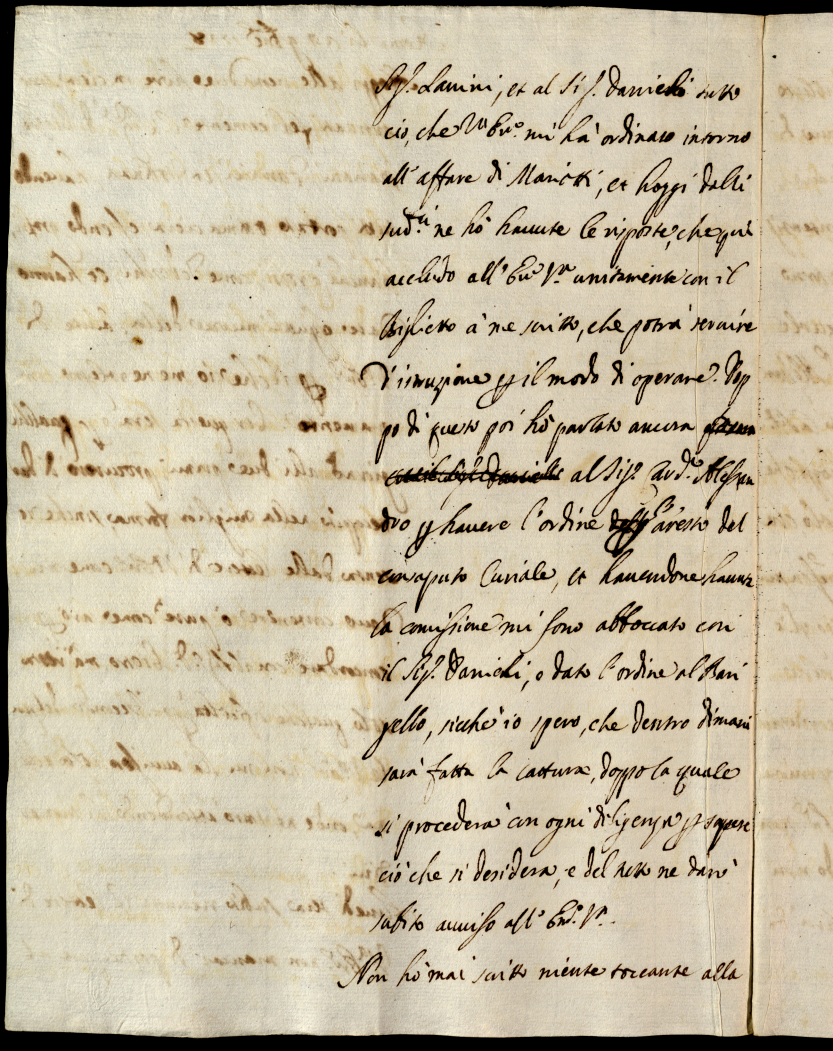 Sig.r Lauini, et al Sig.r Danielli tutto
ciò, che V.a Em.a mi hà ordinato intorno
all'affare di Mariotti, et hoggi dalli
sud.tti ne hò hauute le risposte, che quì
accludo all'Em.a V.ra unitamente con il
Biglietto à me scritto, che potrà seruire
d'istruzione p il modo di operare. Dop
po di questo poi hò parlato ancora
al Sig.r Aud.re Alessan
dro p hauere l'ordine dell'aresto del
consaputo Curiale, et hauendone hauuta
la comissione mi sono abboccato con
il Sig.r Danielli, e dato l'ordine al Bari
gello, sicche io spero, che dentro dimani
sarà fatta la cattura, doppo la quale
si procederà con ogni diligenza p sapere
ciò che si desidera, e del tutto ne darò
subito auuiso all'Em.a V.ra.
Non hò mai scritto niente toccante alla